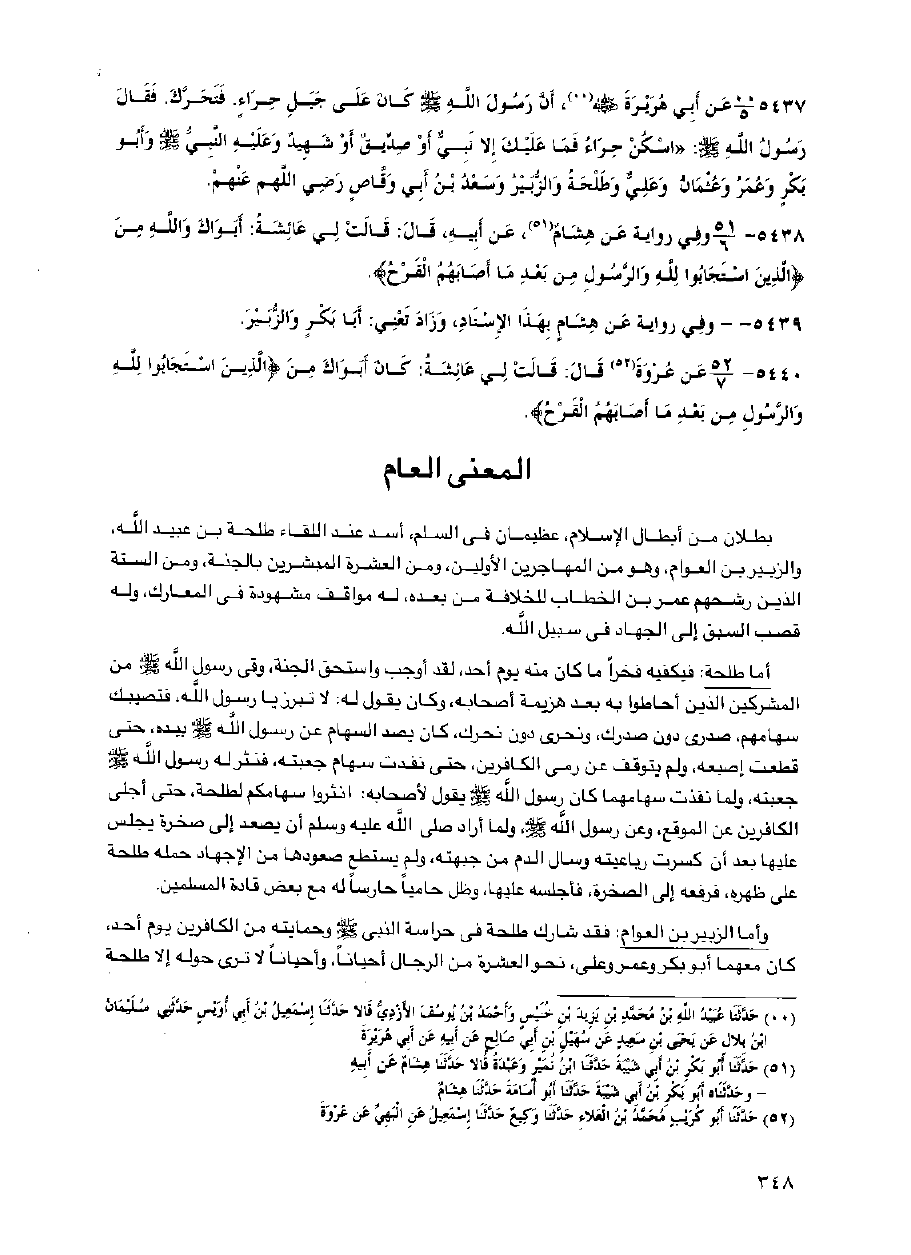 ٥٤٣٧- ٥ عَن أَبِي هُرَيْرَةَ ﷺ(٠٠)، أَنَّ رَسُولَ اللَّهِ ﷺ كَانَ عَلَى جَبَلِ حِرَاءٍ. فَتَحَرَّكَ. فَقَالَ
رَسُولُ اللَّهِ ﷺ: «اسْكُنْ حِرَاءُ فَمَا عَلَيْكَ إِلا نَبِيٌّ أَوْ صِدِّيقٌ أَوْ شَهِيدٌ وَعَلَيْهِ النَّبِيُّ ﷺ وَأَبُو
بَكْرٍ وَعُمَرُ وَعُثْمَانُ وَعَلِيٌّ وَطَلْحَةُ وَالزُّبَيْرُ وَسَعْدُ بْنُ أَبِي وَقَّاصٍ رَضِي اللهم عَنْهمْ.
٥٤٣٨- ٥١/٦ وفِي رواية عَن هِشَامٍ(٥١)، عَن أَبِيهِ، قَالَ: قَالَتْ لِي عَائِشَةُ: أَبَوَاكَ وَاللَّهِ مِنَ
﴿الَّذِينَ اسْتَجَابُوا لِلَّهِ وَالرَّسُولِ مِن بَعْدِ مَا أَصَابَهُمُ الْقَرْحُ﴾.
٥٤٣٩- – وفِي رواية عَن هِشَامٍ بِهَذَا الإِسْنَادِ، وَزَادَ تَعْنِي: أَبَا بَكْرٍ وَالزُّبَيْرَ.
٥٤٤٠- ٥٢/٧ عَن عُرْوَةَ(٥٢) قَالَ: قَالَتْ لِي عَائِشَةُ: كَانَ أَبَوَاكَ مِنَ ﴿الَّذِينَ اسْتَجَابُوا لِلَّهِ
وَالرَّسُولِ مِن بَعْدِ مَا أَصَابَهُمُ الْقَرْحُ﴾.
المعنى العام
بطلان من أبطال الإسلام، عظيمان فى السلم، أسد عند اللقاء طلحة بن عبيد اللَّه،
والزبير بن العوام، وهو من المهاجرين الأولين، ومن العشرة المبشرين بالجنة، ومن الستة
الذين رشحهم عمر بن الخطاب للخلافة من بعده، له مواقف مشهودة فى المعارك، وله
قصب السبق إلى الجهاد فى سبيل اللَّه.
أما طلحة: فيكفيه فخراً ما كان منه يوم أحد، لقد أوجب واستحق الجنة، وقى رسول اللَّه ﷺ من
المشركين الذين أحاطوا به بعد هزيمة أصحابه، وكان يقول له: لا تبرز يا رسول اللَّه، فتصيبك
سهامهم، صدرى دون صدرك، ونحرى دون نحرك، كان يصد السهام عن رسول اللَّه ﷺ بيده، حتى
قطعت إصبعه، ولم يتوقف عن رمى الكافرين، حتى نفدت سهام جعبته، فنثر له رسول اللَّه ﷺ
جعبته، ولما نفذت سهامهما كان رسول اللَّه ﷺ يقول لأصحابه: انثروا سهامكم لطلحة، حتى أجلى
الكافرين عن الموقع، وعن رسول اللَّه ﷺ، ولما أراد صلى اللَّه عليه وسلم أن يصعد إلى صخرة يجلس
عليها بعد أن كسرت رباعيته وسال الدم من جبهته، ولم يستطع صعودها من الإجهاد حمله طلحة
على ظهره، فرفعه إلى الصخرة، فأجلسه عليها، وظل حامياً حارساً له مع بعض قادة المسلمين.
وأما الزبير بن العوام: فقد شارك طلحة فى حراسة النبى ﷺ وحمايته من الكافرين يوم أحد،
كان معهما أبو بكر وعمر وعلى، نحو العشرة من الرجال أحياناً، وأحياناً لا ترى حوله إلا طلحة
(٠٠) حَدَّثَنَا عُبَيْدُ اللَّهِ بْنُ مُحَمَّدِ بْنِ يَزِيدَ بْنِ خُنَيْسٍ وَأَحْمَدُ بْنُ يُوسُفَ الأَزْدِيُّ قَالا حَدَّثَنَا إِسْمَعِيلُ بْنُ أَبِي أُوَيْسٍ حَدَّثَنِي سُلَيْمَانُ
ابْنُ بِلالٍ عَن يَحْيَى بْنِ سَعِيدٍ عَن سُهَيْلِ بْنِ أَبِي صَالِحٍ عَن أَبِيهِ عَن أَبِي هُرَيْرَةَ
(٥١) حَدَّثَنَا أَبُو بَكْرِ بْنُ أَبِي شَيْبَةَ حَدَّثَنَا ابْنُ نُمَيْرٍ وَعَبْدَةُ قَالا حَدَّثَنَا هِشَامٌ عَن أَبِيهِ
– وحَدَّثَنَاه أَبُو بَكْرِ بْنُ أَبِي شَيْبَةَ حَدَّثَنَا أَبُو أُسَامَةَ حَدَّثَنَا هِشَامٌ
(٥٢) حَدَّثَنَا أَبُو كُرَيْبٍ مُحَمَّدُ بْنُ الْعَلاءِ حَدَّثَنَا وَكِيعٌ حَدَّثَنَا إِسْمَعِيلُ عَنِ الْبَهِيِّ عَن عُرْوَةَ
٣٤٨